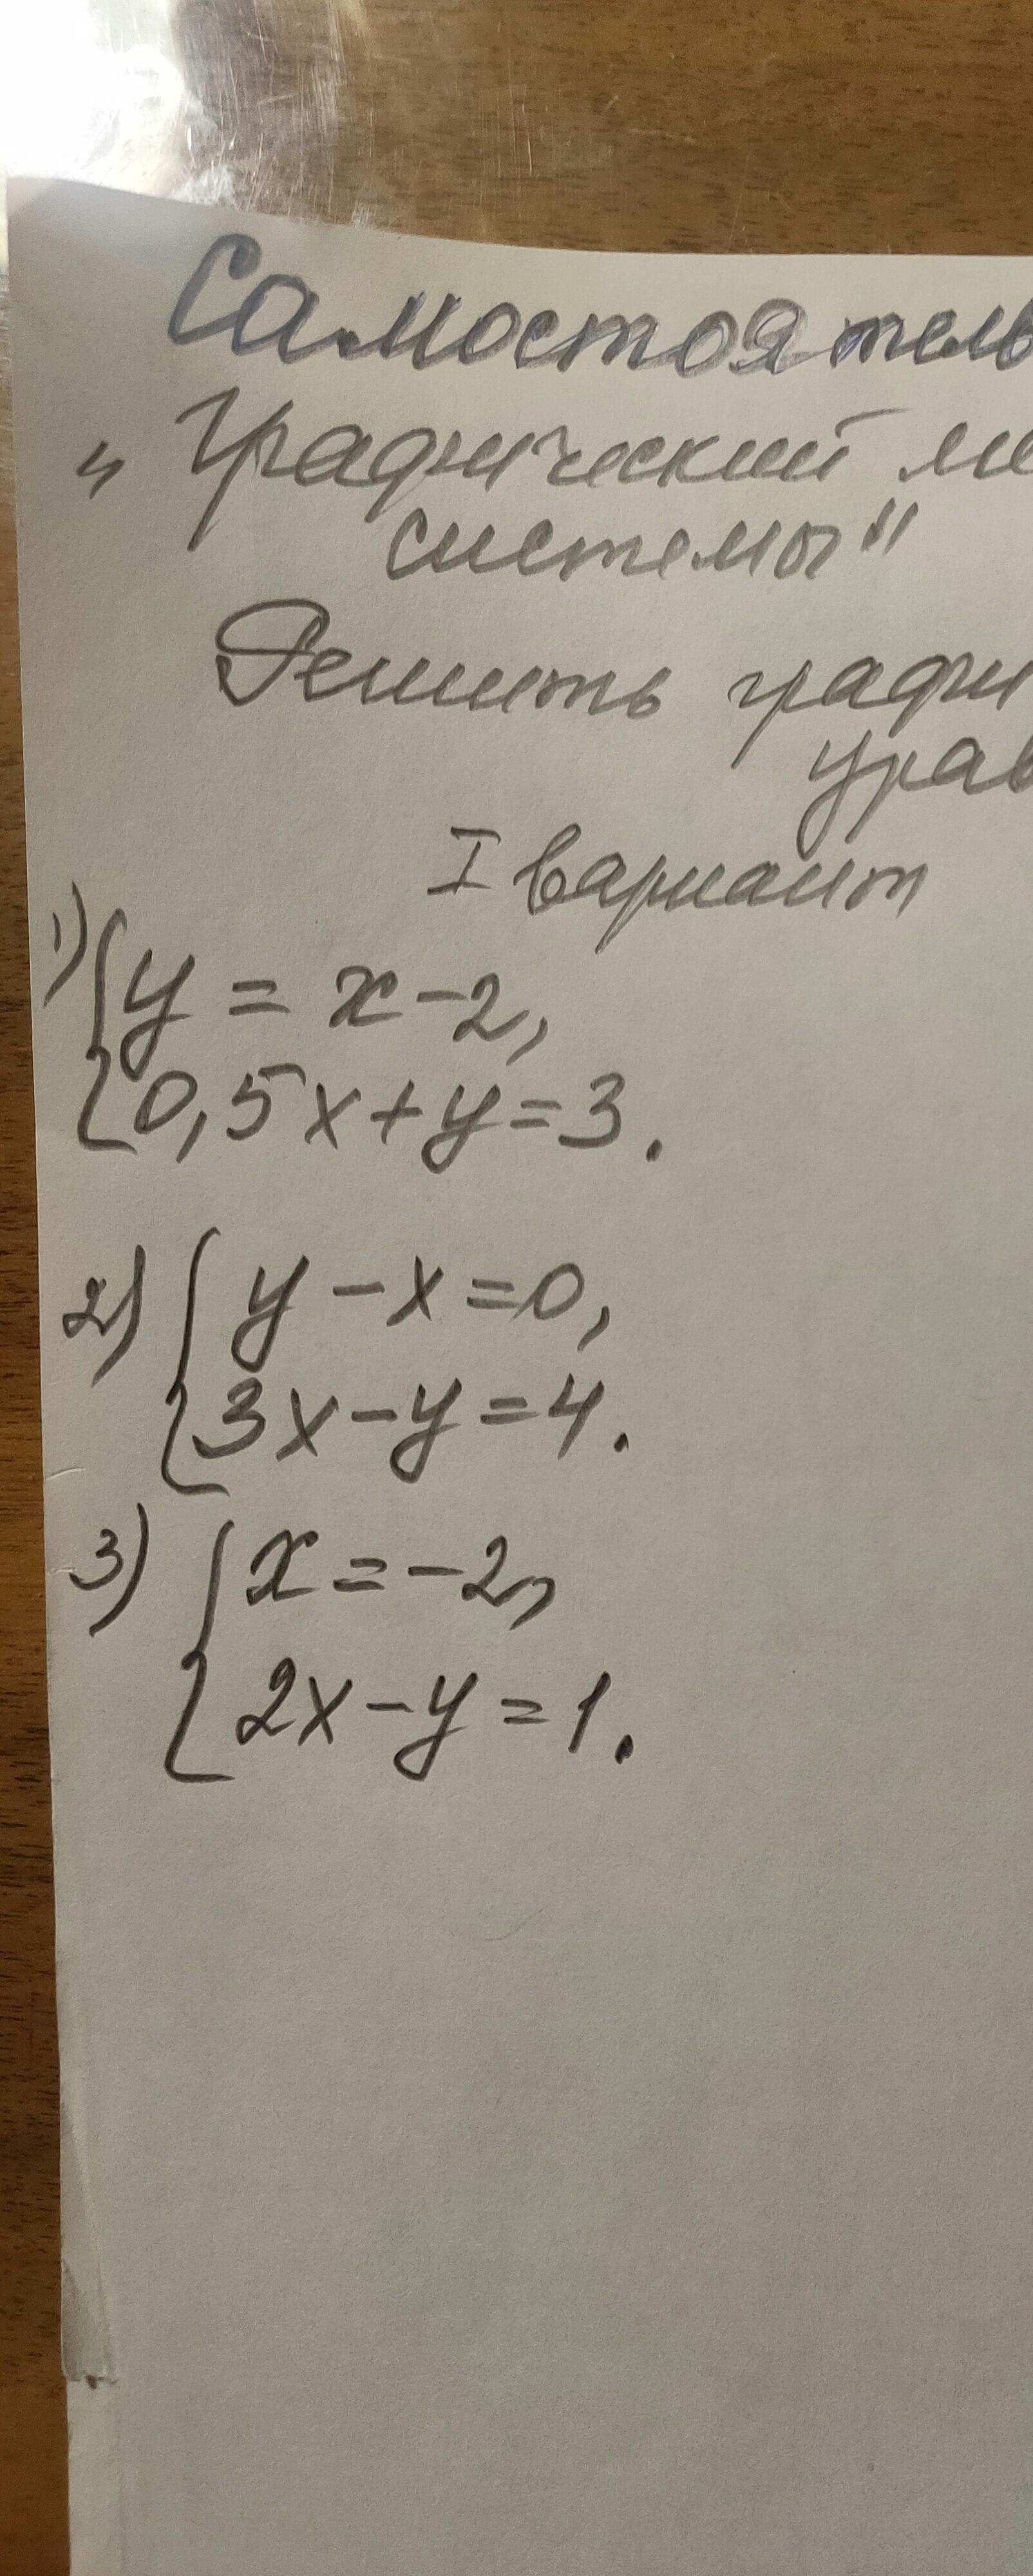 Самостоятель
" Графический ме
системы"
Решить графи
урав
I вариант
1) { y = x - 2,
0,5x + y = 3.
2) { y - x = 0,
3x - y = 4.
3) { x = -2,
2x - y = 1.